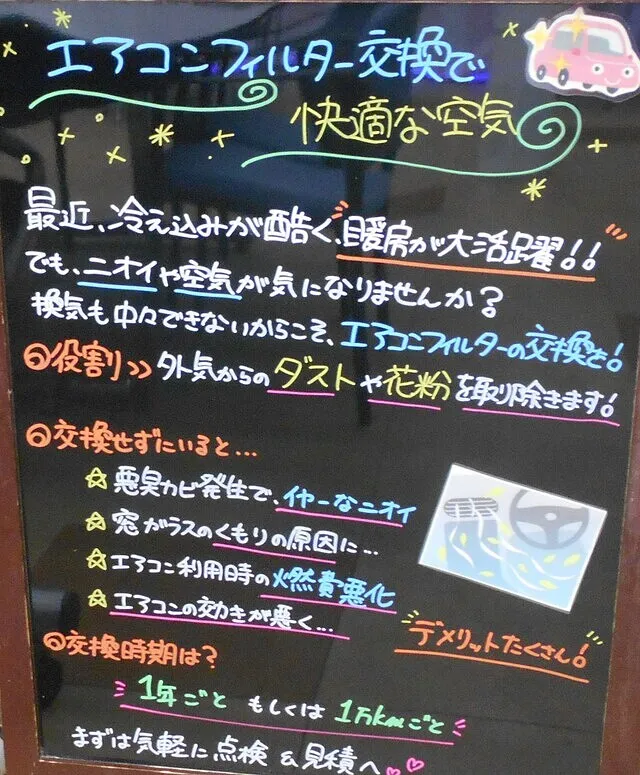 エアコンフィルター交換で
快適な空気
最近、冷え込みが酷く、暖房が大活躍!!
でも、ニオイや空気が気になりませんか?
換気も中々できないからこそ、エアコンフィルターの交換を!
◎役割>> 外気からのダストや花粉を取り除きます!
◎交換せずにいると…
☆悪臭カビ発生で、イヤーなニオイ
☆窓ガラスのくもりの原因に…
☆エアコン利用時の燃費悪化
☆エアコンの効きが悪く…
デメリットたくさん!
◎交換時期は?
1年ごと もしくは 1万kmごと
まずは気軽に点検&見積へ♡♡